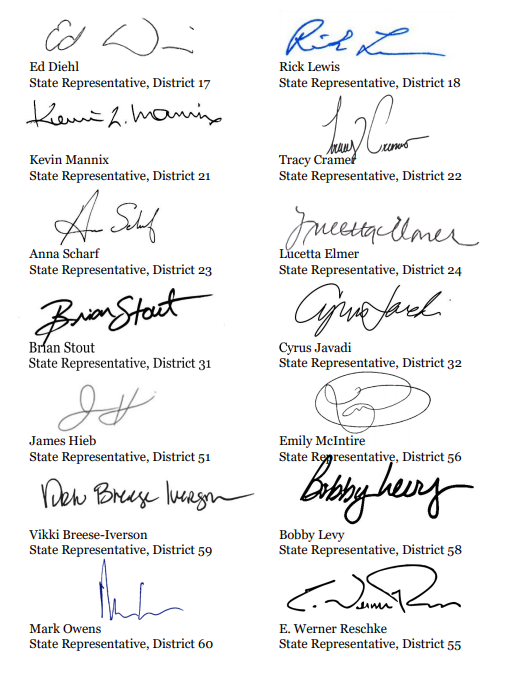 Ed Diehl
State Representative, District 17
Rick Lewis
State Representative, District 18
Kevin L. Mannix
Kevin Mannix
State Representative, District 21
Tracy Cramer
Tracy Cramer
State Representative, District 22
Anna Scharf
State Representative, District 23
Lucetta Elmer
Lucetta Elmer
State Representative, District 24
Brian Stout
Brian Stout
State Representative, District 31
Cyrus Javadi
Cyrus Javadi
State Representative, District 32
James Hieb
State Representative, District 51
Emily McIntire
State Representative, District 56
Vikki Breese-Iverson
State Representative, District 59
Bobby Levy
Bobby Levy
State Representative, District 58
Mark Owens
State Representative, District 60
E. Werner Reschke
State Representative, District 55